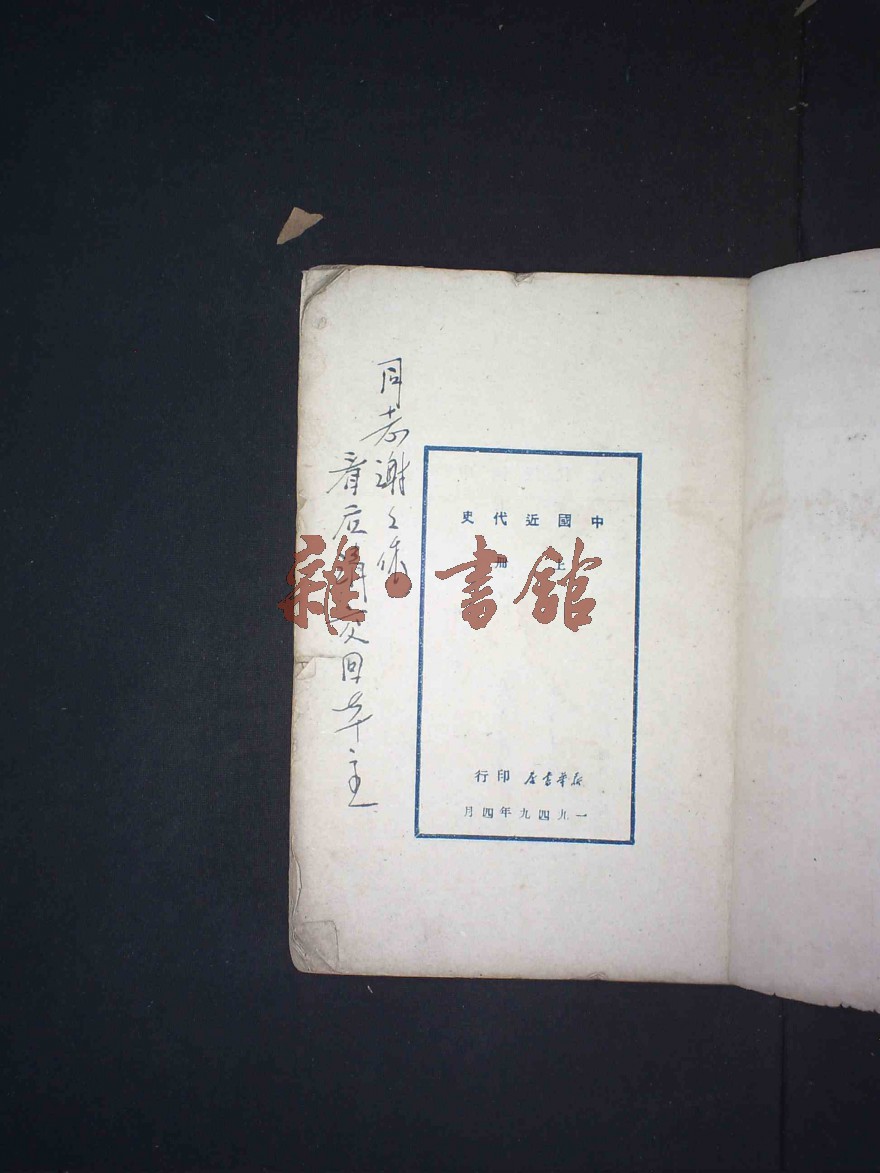 同志谢々你
看后请交回本主
中國近代史
上冊
新華書店 印行
一九四九年四月
雜·書館